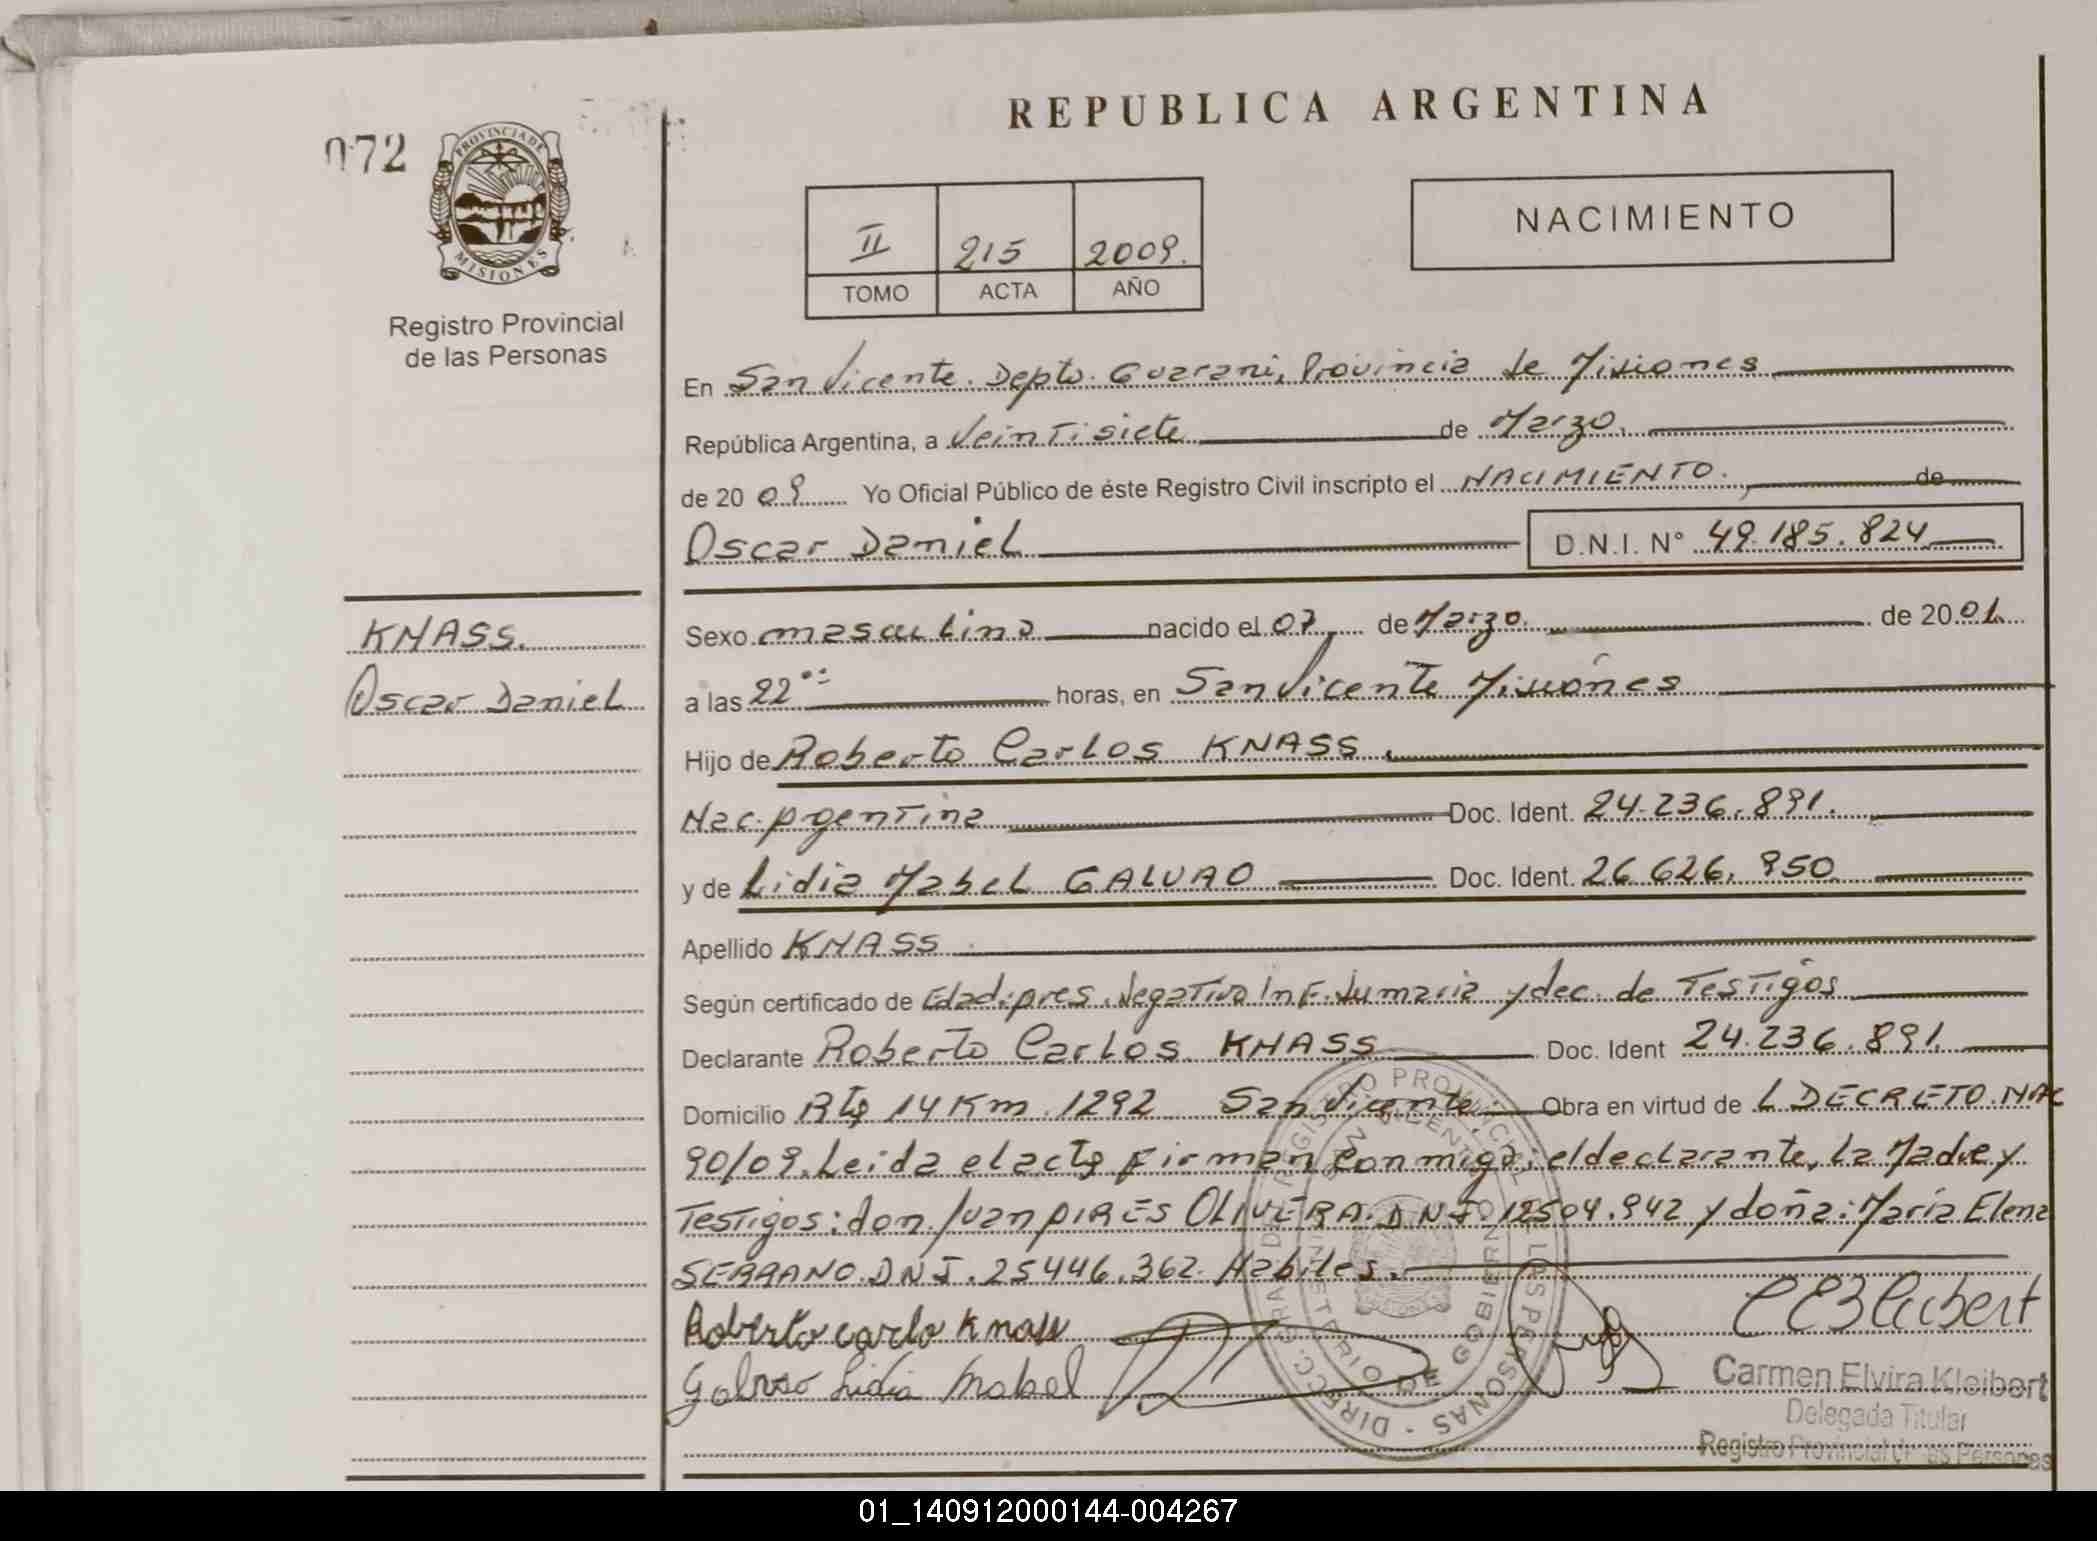 REPUBLICA ARGENTINA
072
PROVINCIA DE
MISIONES
Registro Provincial
de las Personas
II 215 2009.
TOMO ACTA AÑO
NACIMIENTO
En San Vicente. Depto. Guarani, Provincia de Misiones
República Argentina, a Veintisiete de Marzo.
de 20 09 Yo Oficial Público de éste Registro Civil inscripto el NACIMIENTO. de
Oscar Daniel D.N.I. N° 49.185.824
KNASS.
Oscar Daniel
Sexo masculino nacido el 07 de Marzo. de 2001.
a las 22 horas, en San Vicente Misiones
Hijo de Roberto Carlos KNASS.
Nac. Argentina Doc. Ident. 24.236.891.
y de Lidia Mabel GALVAO Doc. Ident. 26.626.950
Apellido KNASS
Según certificado de Edad pres. Negativo Inf. Sumaria y dec. de Testigos
Declarante Roberto Carlos KNASS Doc. Ident 24.236.891.
Domicilio Rta 14 Km. 1292 San Vicente. Obra en virtud de L DECRETO NAC
90/09. Leida el acta firman conmigo; el declarante, la Madre y
Testigos: don Juan PIRES OLIVERA. DNI. 12504.942 y doña: Maria Elena
SERRANO. DNI. 25446.362. Habiles.
Roberto carlo Knass
Galvao Lidia Mabel
Carmen Elvira Kleibert
Delegada Titular
Registro Provincial de las Personas
DIRECC. GRAL. DE REGISTRO PROVINCIAL DE LAS PERSONAS
SAN VICENTE
MINISTERIO DE GOBIERNO
01_140912000144-004267